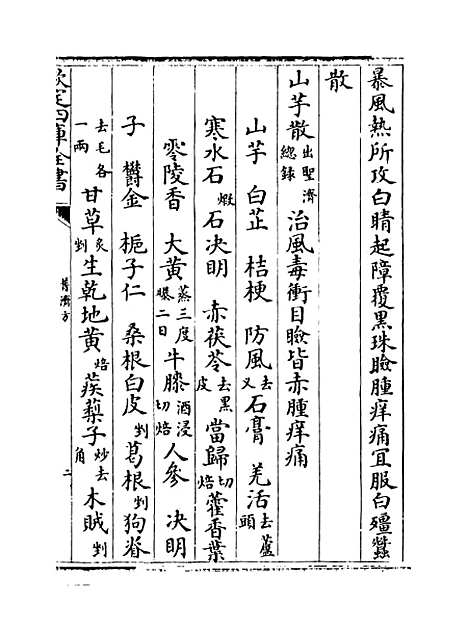 暴風熱所攻白睛起障覆黒珠瞼腫痒痛宜服白殭蠶
散
山芋散出聖濟總録 治風毒衝目瞼眥赤腫痒痛
山芋 白芷 桔梗 防風去叉 石膏 羌活去蘆頭
寒水石煅 石决明 赤茯苓去黒皮 當歸切焙 藿香葉
零陵香 大黄蒸三度曝二日 牛膝酒浸切焙 人參 决明
子 欝金 梔子仁 桑根白皮剉 葛根剉 狗脊
去毛各一兩 甘草炙剉 生乾地黄焙 蒺䔧子炒去角 木賊剉
欽定四庫全書
普濟方
二